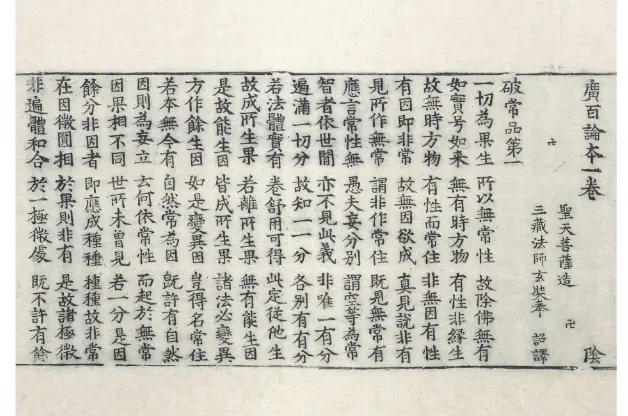 廣百論本一卷 卍 陰
聖天菩薩造 卍
三藏法師玄奘奉 詔譯
破常品第一
一切為果生 所以無常性 故除佛無有
如實号如来 無有時方物 有性非緣生
故無時方物 有性而常住 非無因有性
有因即非常 故無因欲成 真見說非有
見所作無常 謂非作常住 既見無常有
應言常性無 愚夫妄分別 謂空等為常
智者依世間 亦不見此義 非唯一有分
遍滿一切分 故知一一分 各別有有分
若法體實有 卷舒用可得 此定從他生
故成所生果 若離所生果 無有能生因
是故能生因 皆成所生果 諸法必變異
方作餘生因 如是變異因 豈得名常住
若本無今有 自然常為因 既許有自然
因則為妄立 云何依常性 而起於無常
因果相不同 世所未曾見 若一分是因
餘分非因者 即應成種種 種種故非常
在因微圓相 於果則非有 是故諸極微
非遍體和合 於一極微處 既不許有餘